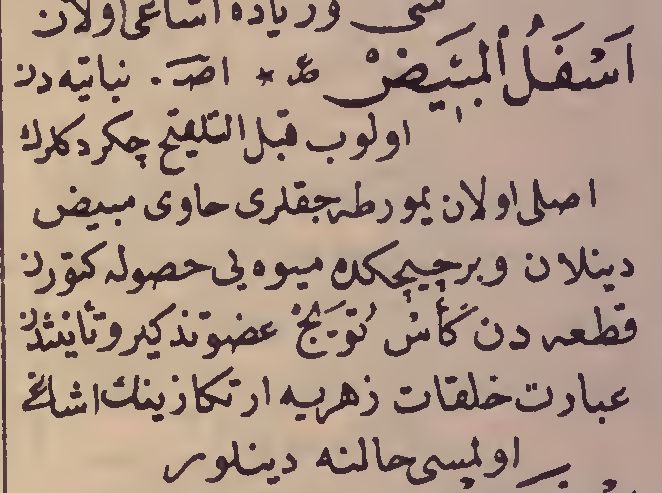 سی و زیاده اشاغی اولان
اَسْفَلُ اَلْمَبِيَضْ عد * اصـ. نباتیه دن
اولوب قبل التلقیح چکردکلرك
اصلی اولان یمورطه جقلری حاوی مبیض
دینلان و بر چیچکده میوه یی حصوله کتورن
قطعه دن كَأْسْ تُوَيْجْ عضو تذکیر و تأنیثدن
عبارت خلقات زهریه ارتکازینك اشاغی
اولمسی حالنه دینلور